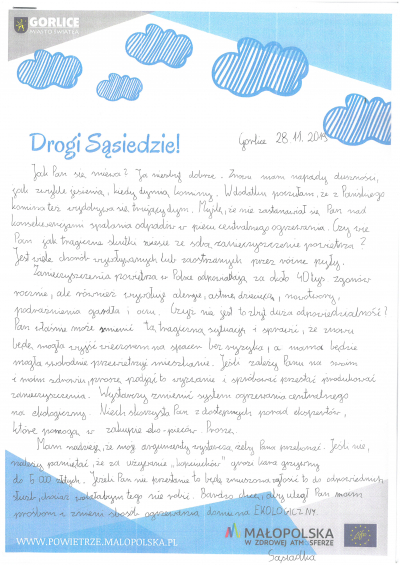 GORLICE
MIASTO ŚWIATŁA
Drogi Sąsiedzie!
Gorlice 28.11.2019
Jak Pan się miewa? Ja niezbyt dobrze. Znowu mam napady duszności,
jak zwykle jesienią, kiedy dymią kominy. W dodatku poczułam, że z Pańskiego
komina też wydobywa się trujący dym. Myślę, że nie zastanawiał się Pan nad
konsekwencjami spalania odpadów w piecu centralnego ogrzewania. Czy wie
Pan jak tragiczne skutki niesie ze sobą zanieczyszczenie powietrza?
Jest wiele chorób wywołanych lub zaostrzanych przez różne pyły.
Zanieczyszczenia powietrza w Polsce odpowiadają za około 40 tyś zgonów
rocznie, ale również wywołuje alergie, astmę, nowotwory,
podrażnienia gardła i oczu. Czyż nie jest to zbyt duża odpowiedzialność?
Pan właśnie może zmienić tą tragiczną sytuację i sprawić, że znowu
będę mogła wyjść wieczorem na spacer bez ryzyka, a mama będzie
mogła swobodnie przewietrzyć mieszkanie. Jeśli zależy Panu na swoim
i moim zdrowiu, proszę, podjąć to wyzwanie i spróbować przestać produkować
zanieczyszczenia. Wystarczy zmienić system ogrzewania centralnego
na ekologiczny. Niech skorzysta Pan z dostępnych porad ekspertów,
które pomogą w zakupie eko-pieców. Proszę.
Mam nadzieję, że moje argumenty wystarczą, żeby Pana przekonać. Jeśli nie,
należy pamiętać, że za używanie „kopciuchów" grozi kara grzywny
do 5 000 złotych. Jeżeli Pan nie przestanie to będę zmuszona zgłosić to do odpowiednich
służb, chociaż tego nie robić. Bardzo chcę, aby uległ Pan moim
prośbom i zmienił sposób ogrzewania domu na EKOLOGICZNY.
WWW.POWIETRZE.MALOPOLSKA.PL
MAŁOPOLSKA
W ZDROWEJ ATMOSFERZE
Sąsiadka